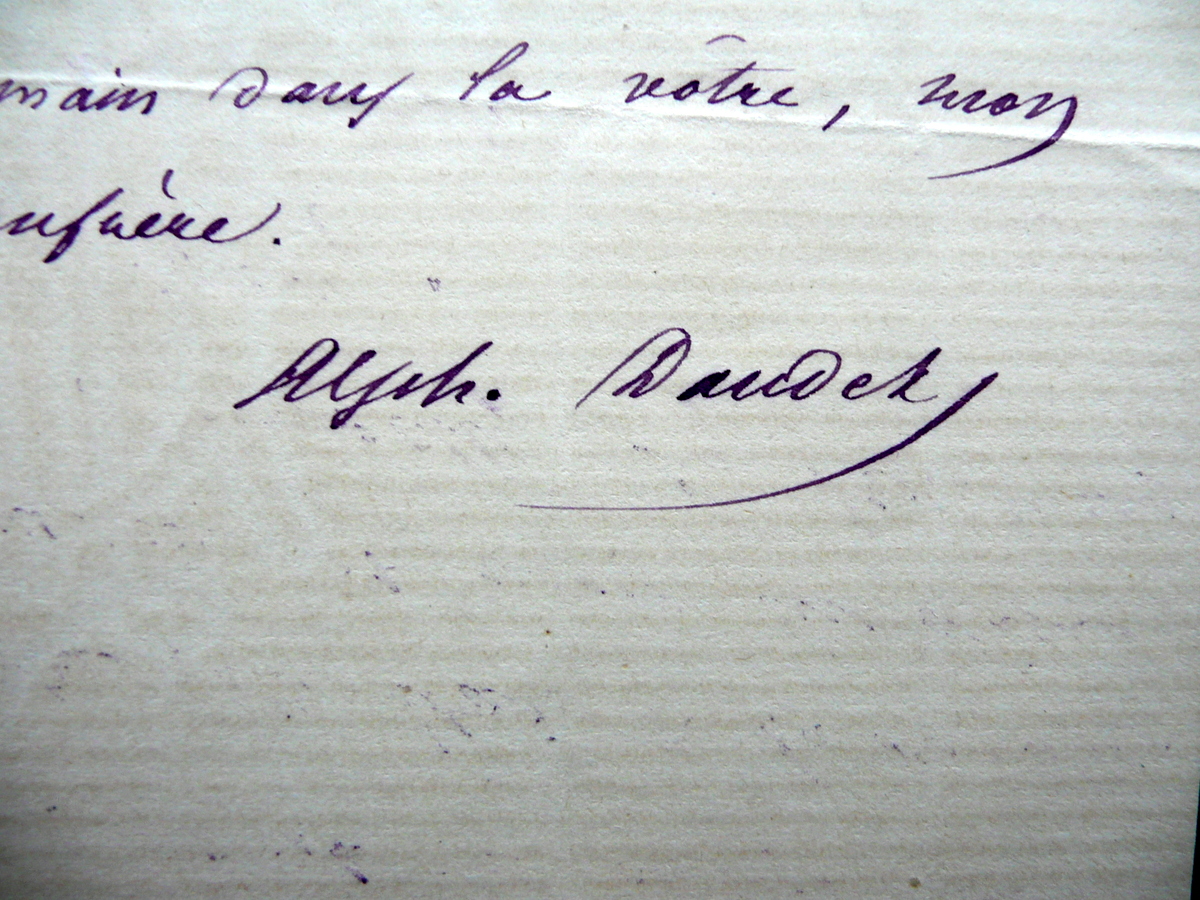 main dans la vôtre, mon
nfrère.
Alph. Daudet